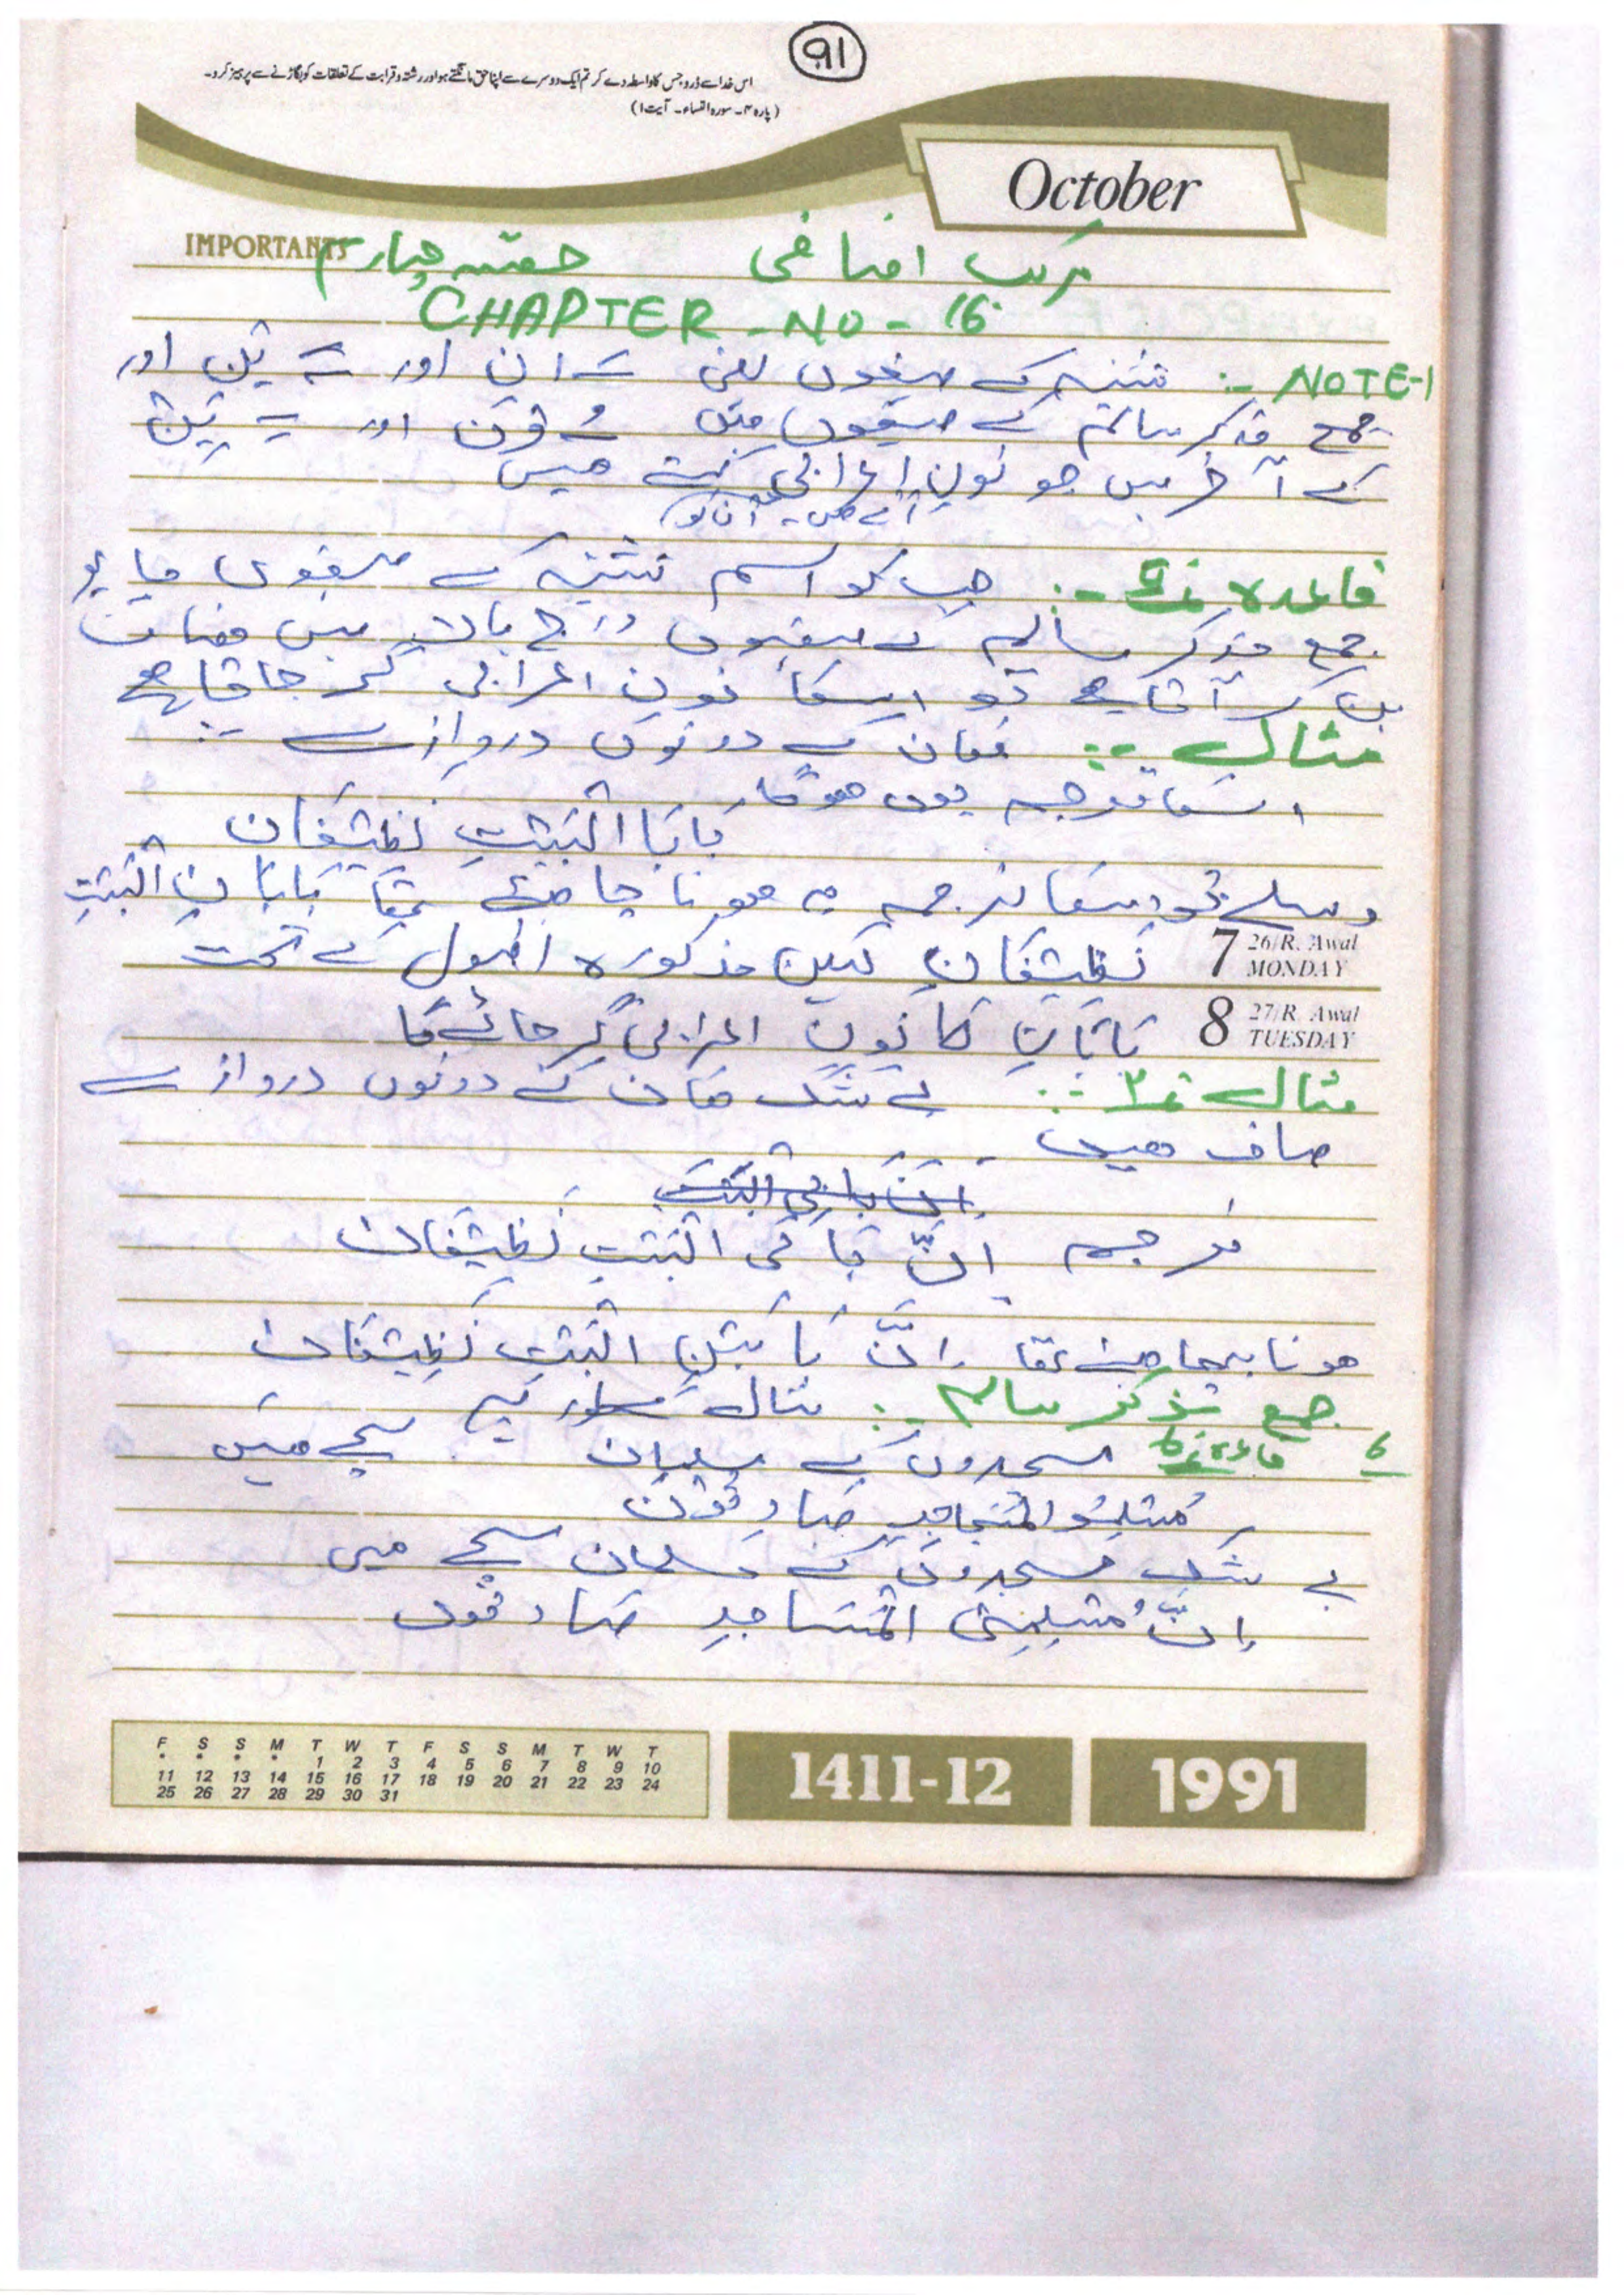 91
اس خدا سے ڈرو جس کا واسطہ دے کر تم ایک دوسرے سے اپنا حق مانگتے ہو اور رشتہ و قرابت کے تعلقات کو بگاڑنے سے پرہیز کرو۔
(پارہ ۴۔ سورہ النساء۔ آیت ۱)
October
IMPORTANTS
مرکب اضافی حصہ چہارم
CHAPTER - NO - 16
NOTE-1 :- تثنیہ کے صیغوں یعنی ان اور ین اور
جمع مذکر سالم کے صیغوں میں ون اور ین
کے آخر میں جو نون اعرابی کہتے ہیں
آتے ہیں۔ ان کو
قاعدہ نمبر 5 :- جب کو اسم تثنیہ کے صیغوں یا
جمع مذکر سالم کے صیغوں میں مضاف
بن کر آتا ہے تو اسکا نون اعرابی گر جاتا ہے
مثال :- مکان کے دونوں دروازے
اسکا ترجمہ یوں ہوگا۔
بَابَا الْبَيْتِ نَظِيْفَانِ
تو اسکا ترجمہ یہ ہونا چاہئے تھا بَابَانِ الْبَيْتِ
7 26/R. Awal MONDAY نَظِيْفَانِ لیکن مذکورہ اصول کے تحت
8 27/R. Awal TUESDAY بَابَانِ کا نون اعرابی گر جائے گا
مثال نمبر ۲ :- بے شک مکان کے دونوں دروازے
صاف ہیں۔
اِنَّ بابی الْبَيْتِ
ترجمہ اِنَّ بَابَی الْبَيْتِ نَظِيْفَانِ
ہونا چاہئے تھا اِنَّ بَابَيْنِ الْبَيْتِ نَظِيْفَانِ
جمع مذکر سالم :- مثال
6 قاعدہ نمبر 6 مسجدوں کے مسلمان سچے ہیں
مُسْلِمُو الْمَسَاجِدِ صَادِقُوْنَ
بے شک مسجدوں کے مسلمان سچے ہیں
اِنَّ مُسْلِمِی الْمَسَاجِدِ صَادِقُوْنَ
F S S M T W T F S S M T W T
* * * * 1 2 3 4 5 6 7 8 9 10
11 12 13 14 15 16 17 18 19 20 21 22 23 24
25 26 27 28 29 30 31
1411-12
1991